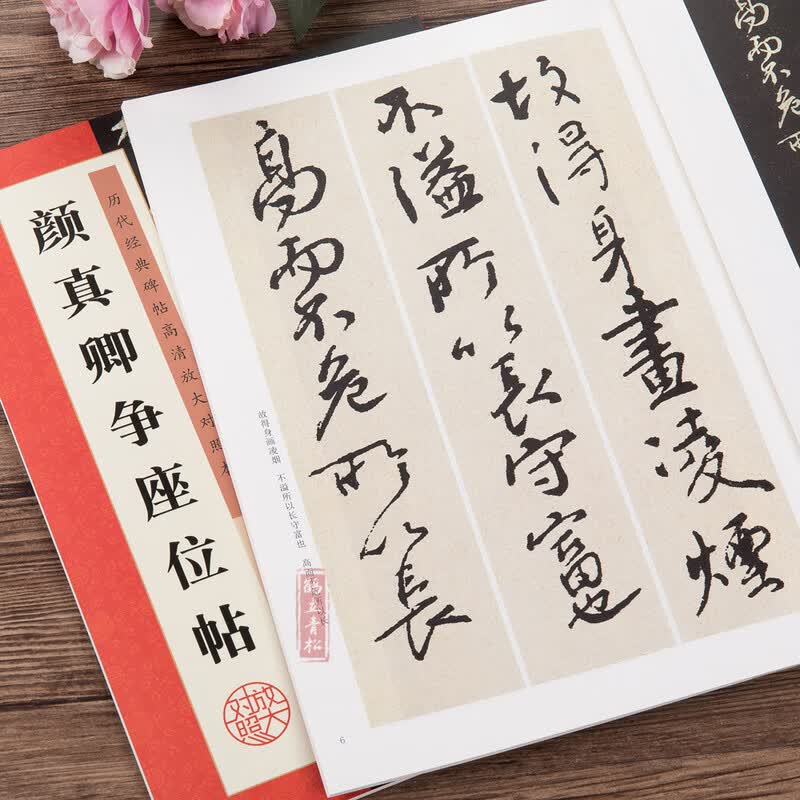 颜真卿争座位帖
历代经典碑帖高清放大对照本
放大对照
故得身畫凌煙
不溢所以長守富也
高而不危所以長
故得身画凌烟 不溢所以长守富也 高而
鹤立青松
6
高而不危所